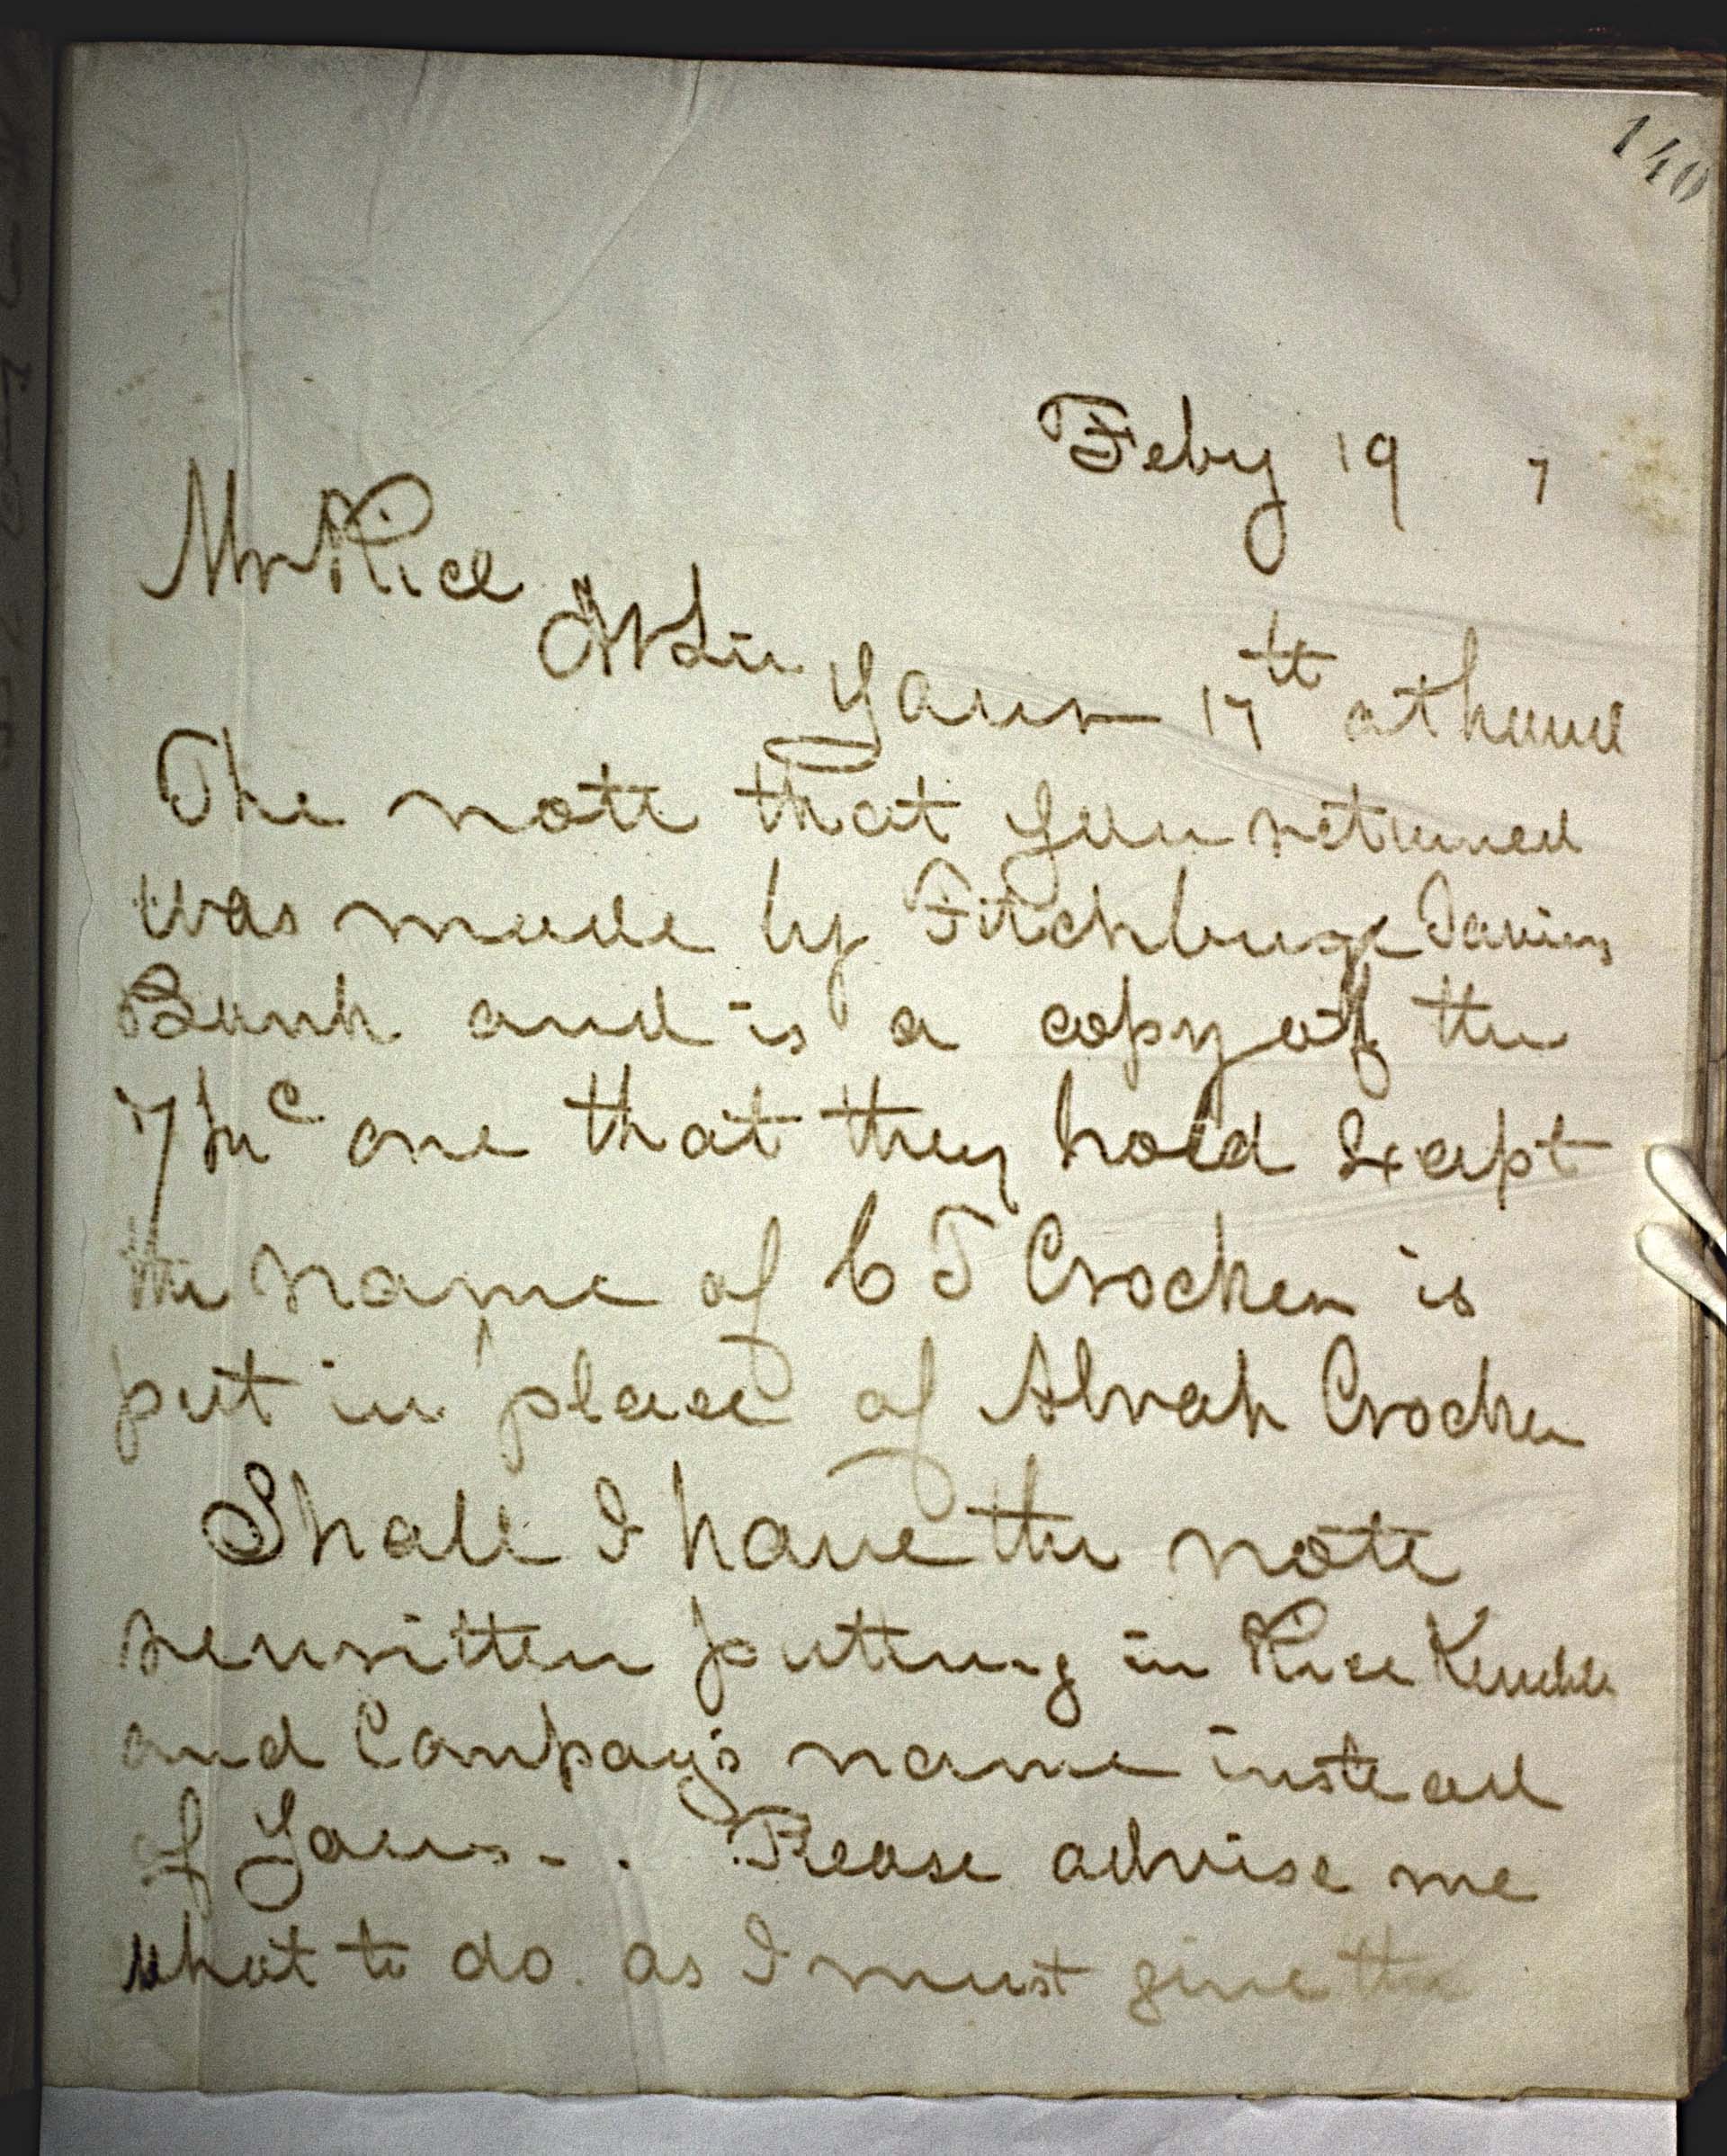 140
Feby 19 7
Mr Rice
D Sir
Yours 17th at hand
The note that you returned
was made by Fitchburg Savings
Bank and is a copy of the
one that they hold Except
the name of C T Crocker is
put in place of Alvah Crocker
Shall I have the note
rewritten putting in Rice Kendall
and Company's name instead
of Yours. Please advise me
what to do. as I must give the